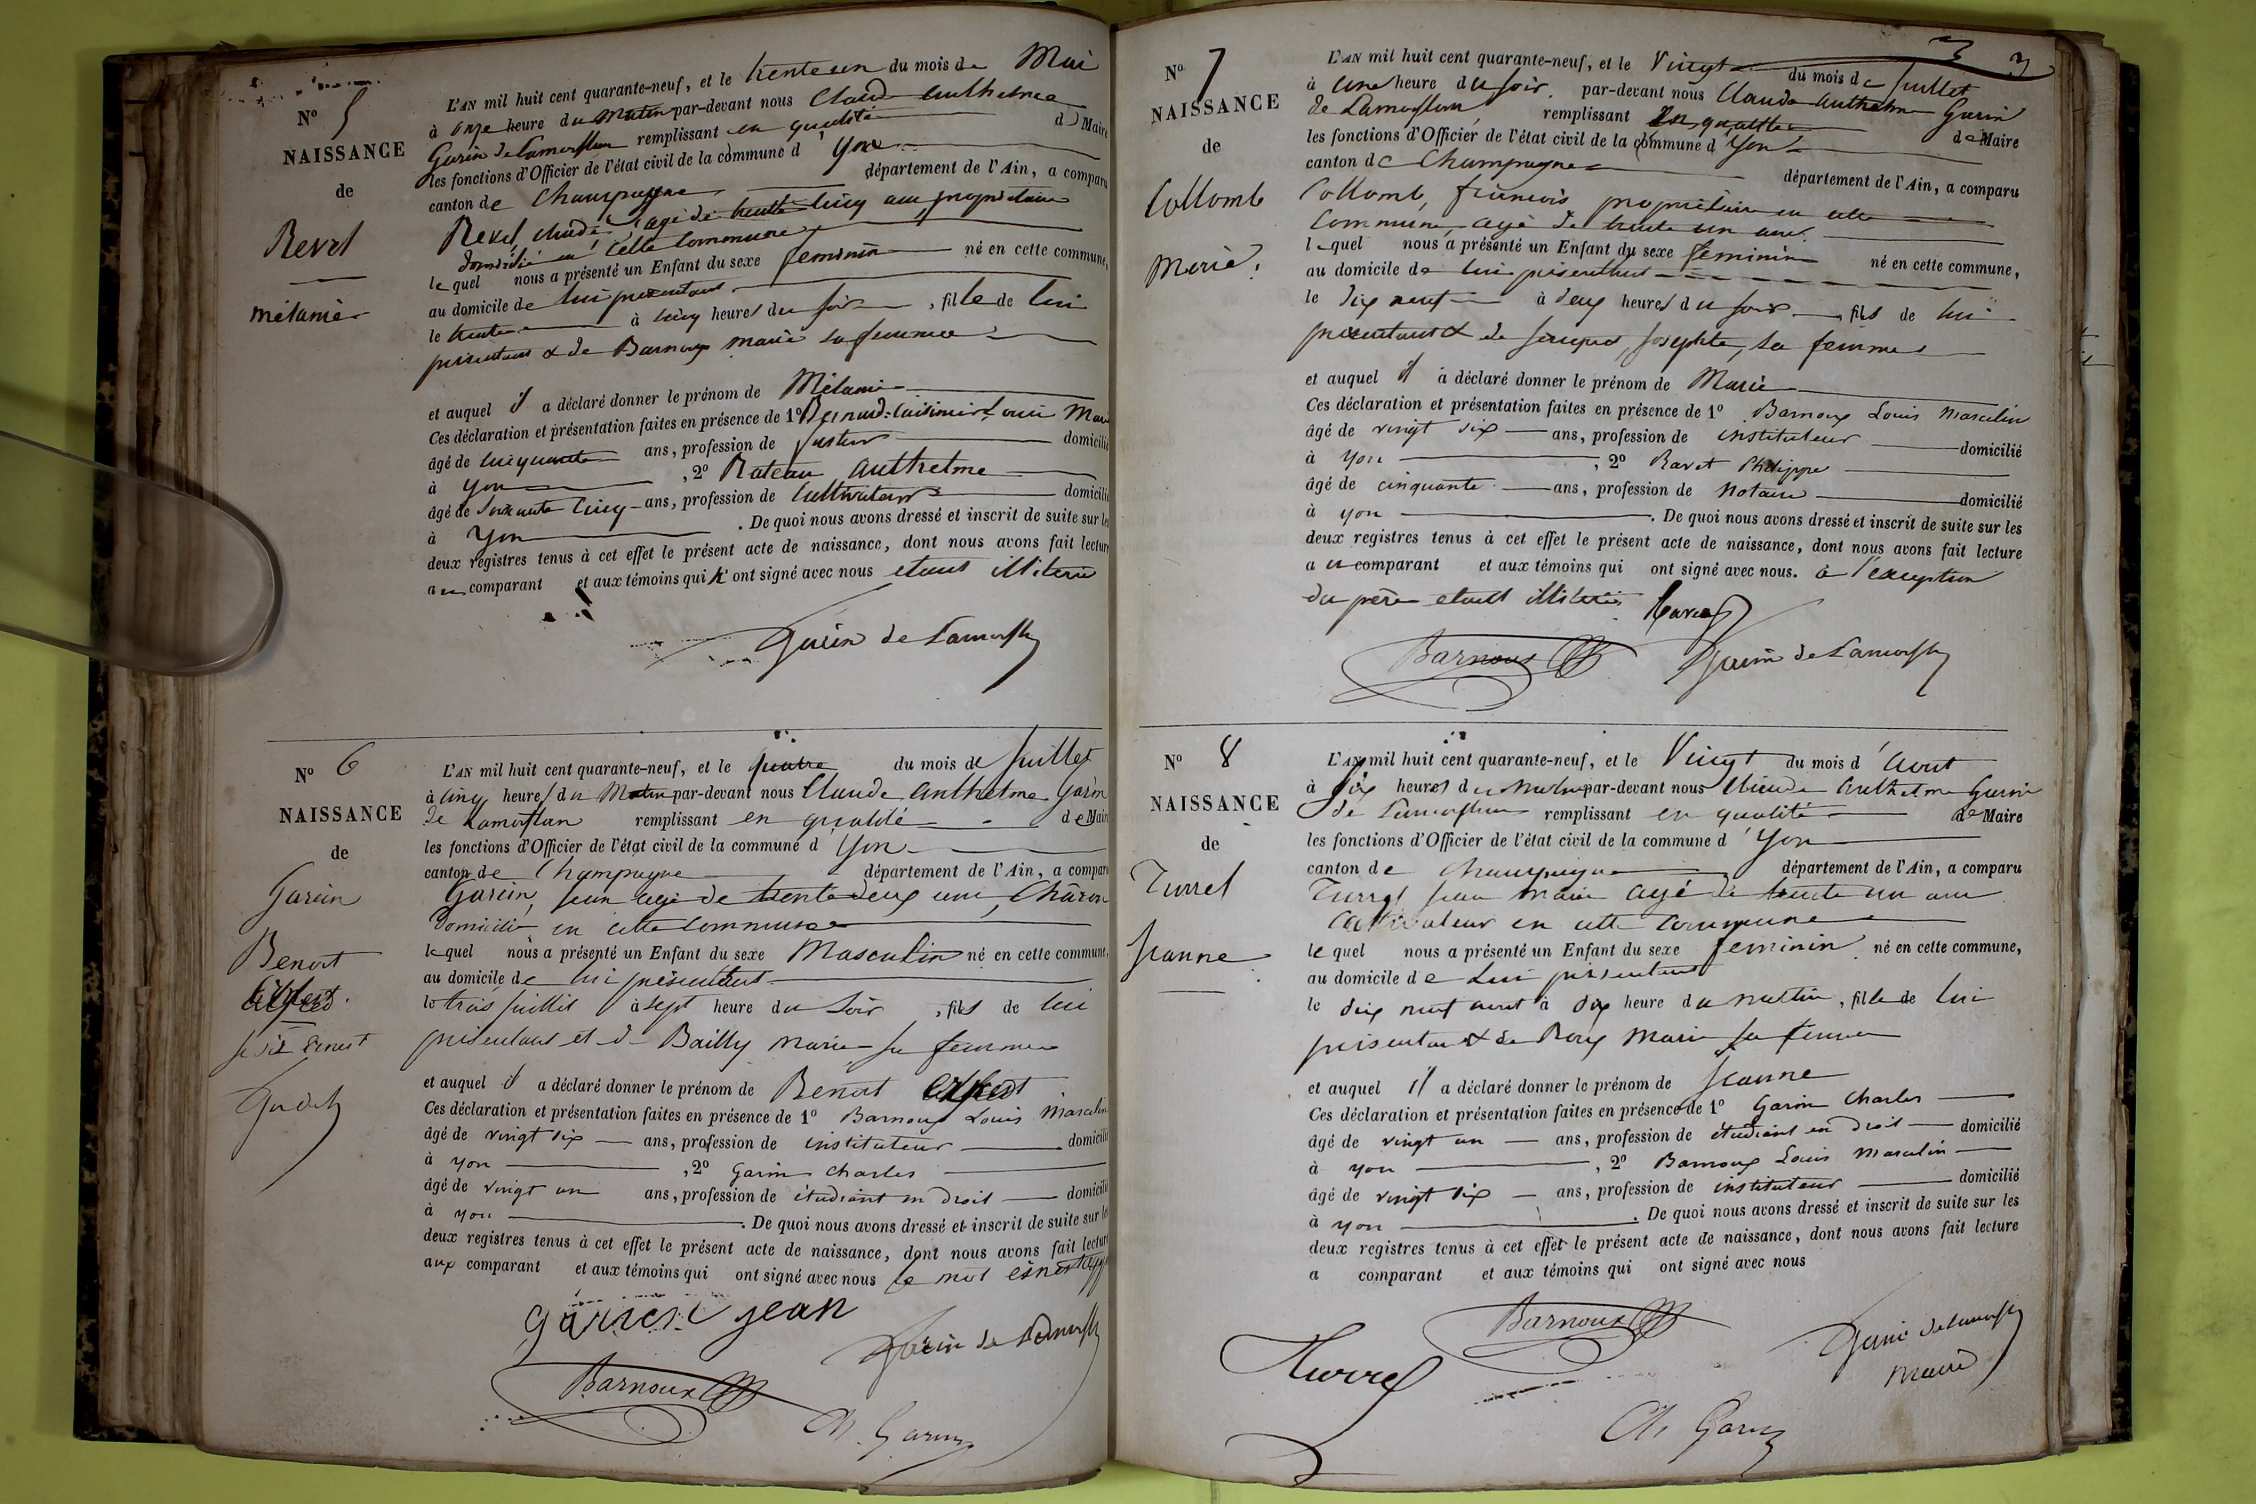 N° 5
NAISSANCE
de
Revel
mélanie
L'AN mil huit cent quarante-neuf, et le trente un du mois de Mai
à onze heure du matin par-devant nous Claude Anthelme
Garin de Lamorflan remplissant en qualité de Maire
les fonctions d'Officier de l'état civil de la commune d'Yon
canton de Champagne département de l'Ain, a comparu
Revel, Claude, agé de trente cinq ans, propriétaire
domicilié en cette Commune
lequel nous a présenté un Enfant du sexe feminin né en cette commune,
au domicile de lui présentant
le trente à cinq heures du soir, fille de lui
présentant & de Barnoux marie sa femme
et auquel il a déclaré donner le prénom de Mélanie
Ces déclaration et présentation faites en présence de 1°
âgé de cinquante ans, profession de domicilié
à yon, 2° Rateau Anthelme
âgé de soixante cinq ans, profession de Cultivateur domicilié
à Yon. De quoi nous avons dressé et inscrit de suite sur les
deux registres tenus à cet effet le présent acte de naissance, dont nous avons fait lecture
au comparant et aux témoins qui n'ont signé avec nous etant illiteré
Garin de Lamorflan
N° 6
NAISSANCE
de
Garcin
Benoit
je dis Ernest
L'AN mil huit cent quarante-neuf, et le quatre du mois de Juillet
à cinq heures du Matin par-devant nous Claude Anthelme Garin
de Lamorflan remplissant en qualité de Maire
les fonctions d'Officier de l'état civil de la commune d'Yon
canton de Champagne département de l'Ain, a comparu
Garcin, Jean agé de trente deux ans, Charon
Domicilié en cette commune
lequel nous a présenté un Enfant du sexe Masculin né en cette commune,
au domicile de lui présentant
le trois juillet à sept heure du soir, fils de lui
présentant et de Bailly marie sa femme
et auquel il a déclaré donner le prénom de Benoit
Ces déclaration et présentation faites en présence de 1° Barnoux Louis Marcelin
âgé de vingt six ans, profession de instituteur domicilié
à yon, 2° Garin Charles
âgé de vingt un ans, profession de étudiant en droit domicilié
à yon. De quoi nous avons dressé et inscrit de suite sur les
deux registres tenus à cet effet le présent acte de naissance, dont nous avons fait lecture
aux comparant et aux témoins qui ont signé avec nous le mot
garcin jean
Garin de Lamorflan
Barnoux
Ch. Garin
3
N° 7
NAISSANCE
de
Collomb
Marie
L'AN mil huit cent quarante-neuf, et le Vingt du mois de Juillet
à une heure du soir par-devant nous Claude Anthelme Garin
de Lamorflan remplissant en qualité de Maire
les fonctions d'Officier de l'état civil de la commune d'Yon
canton de Champagne département de l'Ain, a comparu
Collomb, françois propriétaire en cette
commune, agé de trente un ans
lequel nous a présenté un Enfant du sexe feminin né en cette commune,
au domicile de lui présentant
le dix neuf à deux heures du soir, fils de lui
présentant & de Josephte, sa femme
et auquel il a déclaré donner le prénom de Marie
Ces déclaration et présentation faites en présence de 1° Barnoux Louis Marcelin
âgé de vingt six ans, profession de instituteur domicilié
à yon, 2° Ravet Philippe
âgé de cinquante ans, profession de Notaire domicilié
à yon. De quoi nous avons dressé et inscrit de suite sur les
deux registres tenus à cet effet le présent acte de naissance, dont nous avons fait lecture
au comparant et aux témoins qui ont signé avec nous. à l'exception
du père etant illiteré Ravet
Barnoux Garin de Lamorflan
N° 8
NAISSANCE
de
Turrel
Jeanne
L'AN mil huit cent quarante-neuf, et le Vingt du mois d'Aout
à dix heures du matin par-devant nous Claude Anthelme Garin
de Lamorflan remplissant en qualité de Maire
les fonctions d'Officier de l'état civil de la commune d'Yon
canton de Champagne département de l'Ain, a comparu
Turrel Jean Marie agé de trente un ans
Cultivateur en cette commune
lequel nous a présenté un Enfant du sexe feminin né en cette commune,
au domicile de Lui présentant
le dix neuf aout à dix heure du mattin, fille de lui
présentant & de Roux Marie sa femme
et auquel il a déclaré donner le prénom de Jeanne
Ces déclaration et présentation faites en présence de 1° Garin Charles
âgé de vingt un ans, profession de étudiant en droit domicilié
à yon, 2° Barnoux Louis Marcelin
âgé de vingt six ans, profession de instituteur domicilié
à yon. De quoi nous avons dressé et inscrit de suite sur les
deux registres tenus à cet effet le présent acte de naissance, dont nous avons fait lecture
a comparant et aux témoins qui ont signé avec nous
Barnoux
Garin de Lamorflan
Maire
Turrel
Ch. Garin